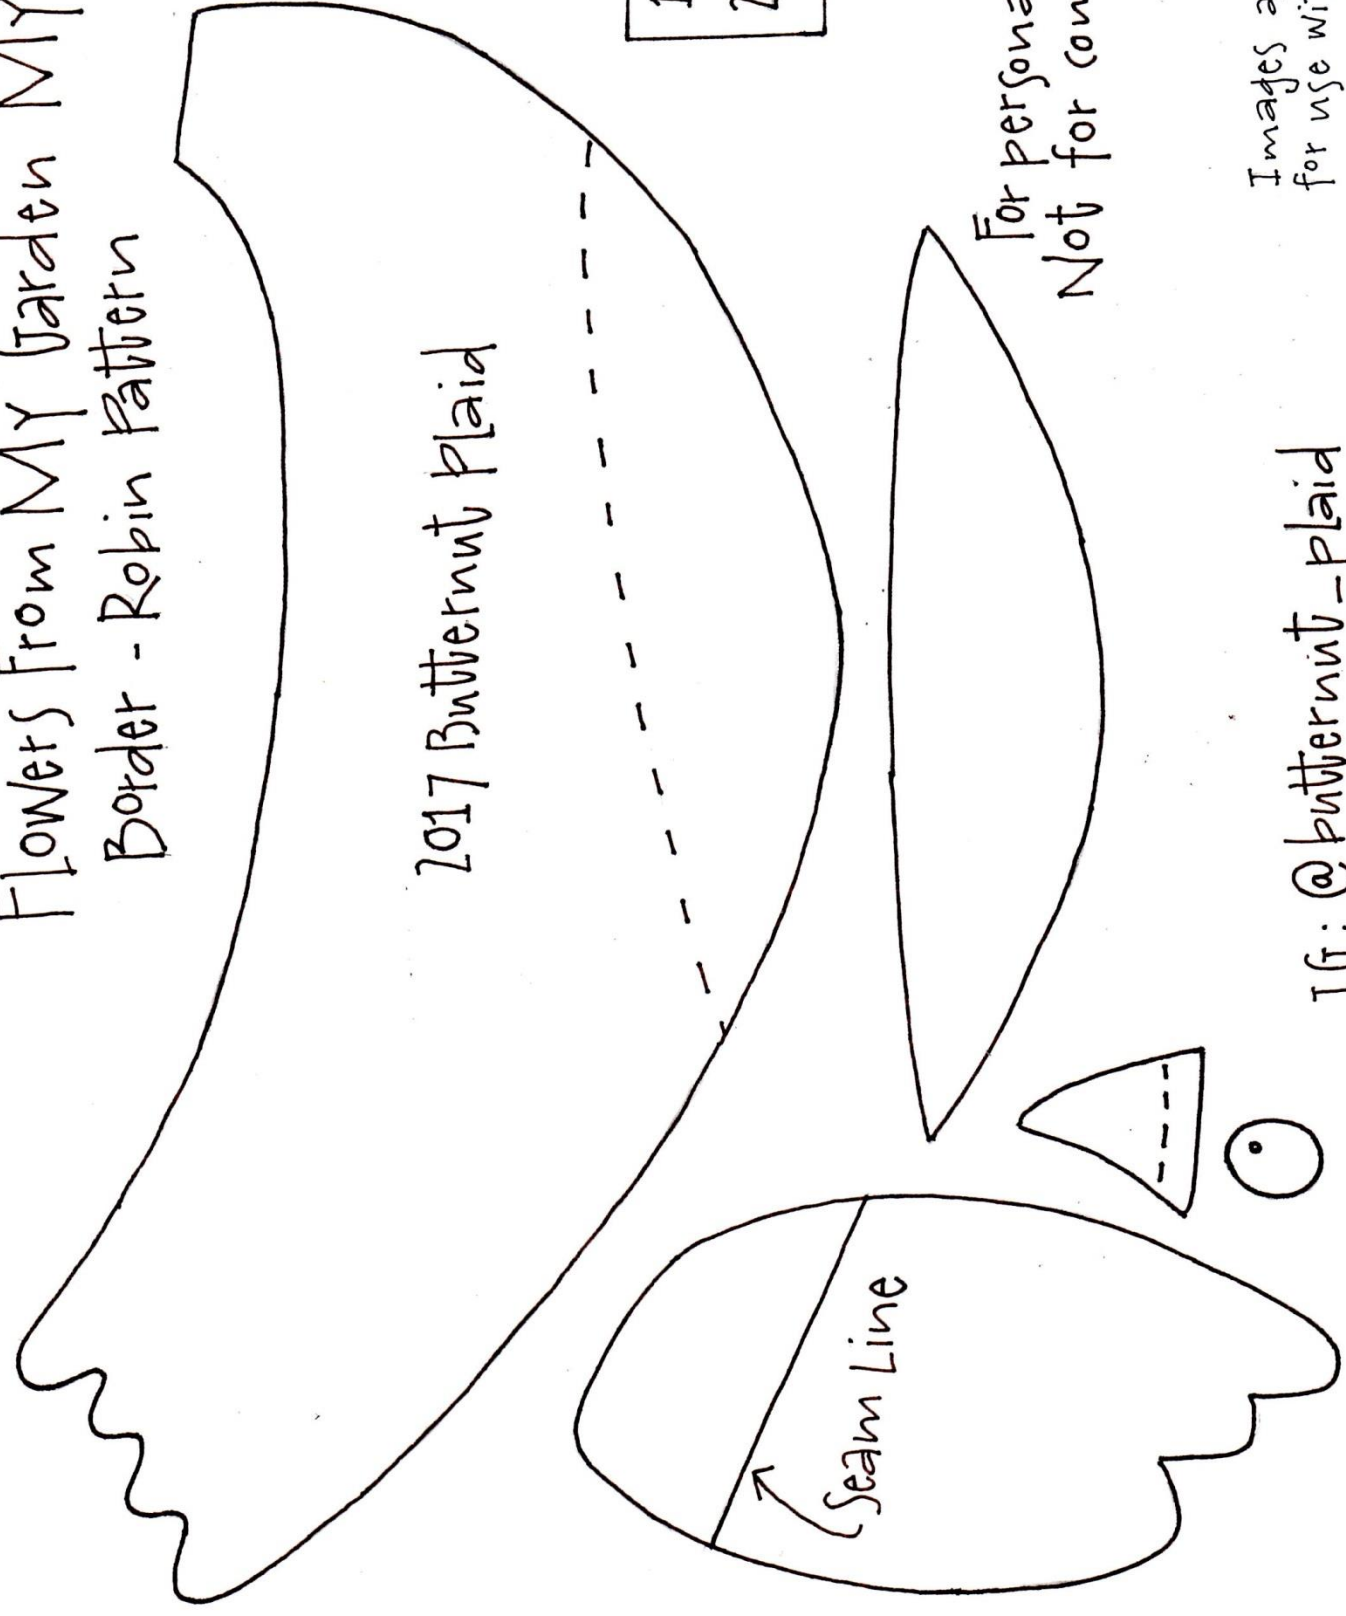 Flowers From My Garden My
Border - Robin Pattern
2017 Butternut Plaid
1
2
For persona
Not for com
Images a
for use wi
IG: @butternut_plaid
Seam Line